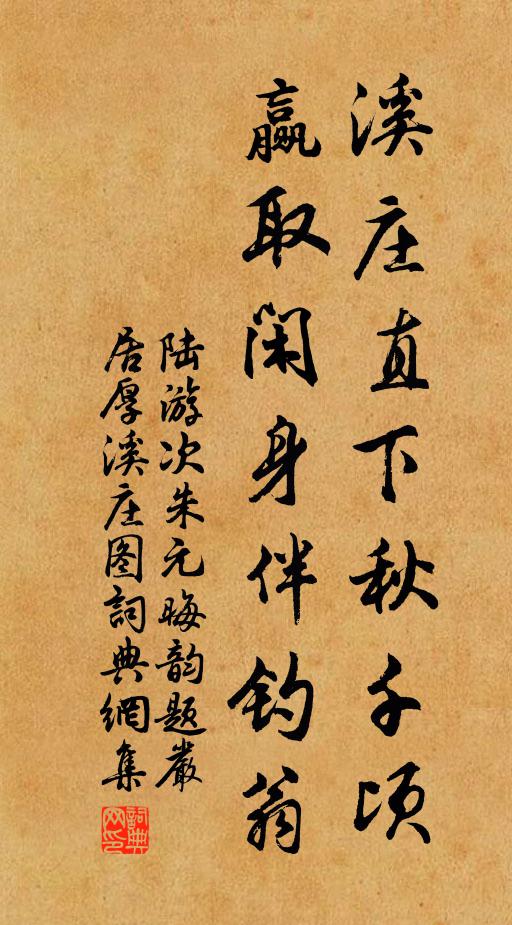 溪庄直下秋千顷
赢取閑身伴钓翁
陆游次朱元晦韵题嚴
居厚溪庄图詞典網集
詞典网印